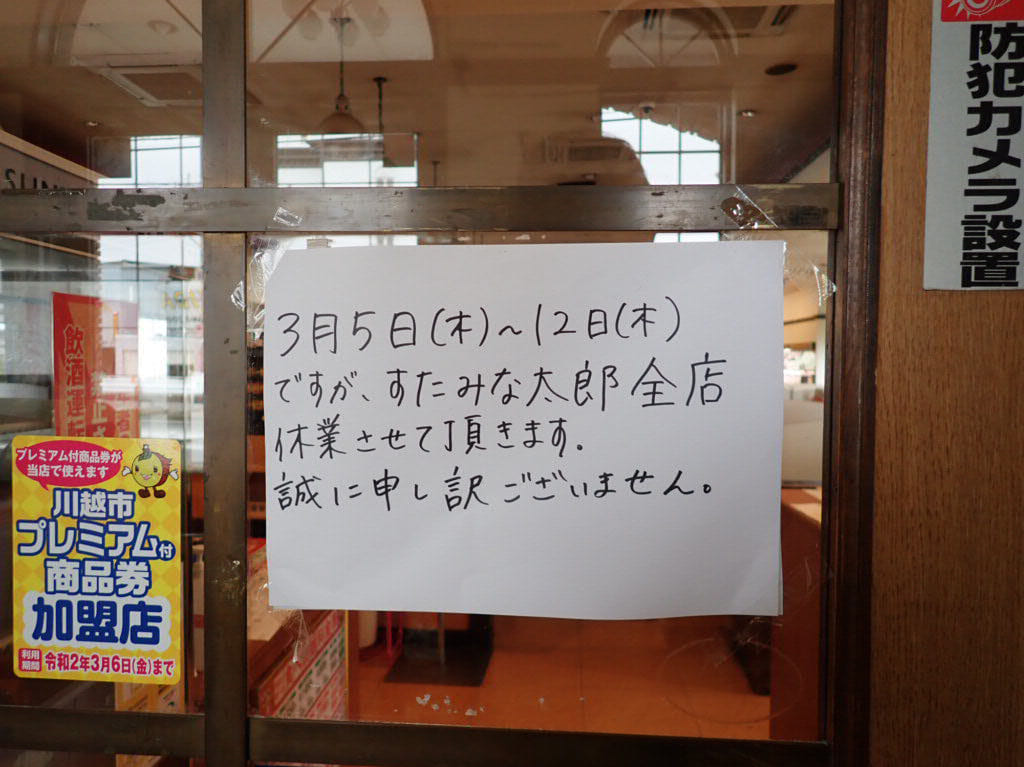 3月5日(木)~12日(木)
ですが、すたみな太郎全店
休業させて頂きます.
誠に申し訳ございません。
プレミアム付商品券が
当店で使えます
川越市
プレミアム付
商品券
加盟店
利用
期間
令和2年3月6日(金)まで
飲酒運転
防犯カメラ設置